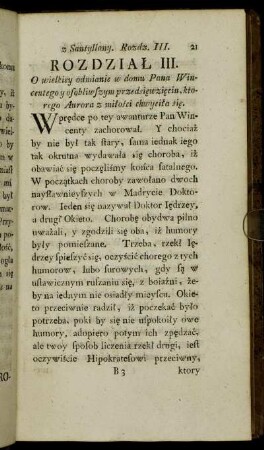 z Santyllany. Rozdz. III. 21
ROZDZIAŁ III.
O wielkiey odmianie w domu Pana Win-
centego y osobliwszym przedsięwzięciu, kto-
rego Aurora z miłości chwyciła się.
Wprędce po tey awanturze Pan Win-
centy zachorował. Y chociaż
by nie był tak stary, sama iednak iego
tak okrutna wydawała się choroba, iż
obawiać się poczęliśmy końca fatalnego.
W początkach choroby zawołano dwoch
naysławnieyszych w Madrycie. Dokto-
row. Ieden się nazywał Doktor Iędrzey,
a drugi Okieto. Chorobę obydwa pilno
uważali, y zgodzili się oba, iż humory
były pomieszane. Trzeba, rzekł Ię-
drzey spieszyć się, oczyścić chorego z tych
humorow, lubo surowych, gdy są w
ustawicznym ruszaniu się, z boiaźni, że-
by na iednym nie osiadły mieyscu. Okie-
to przeciwnie radził, iż poczekać było
potrzeba, poki by się nie uspokoiły owe
humory, adopiero potym ich zpędzać,
ale twoy sposob liczenia rzekł drugi, iest
oczywiście Hipokratesowi przeciwny,
B 3 ktory